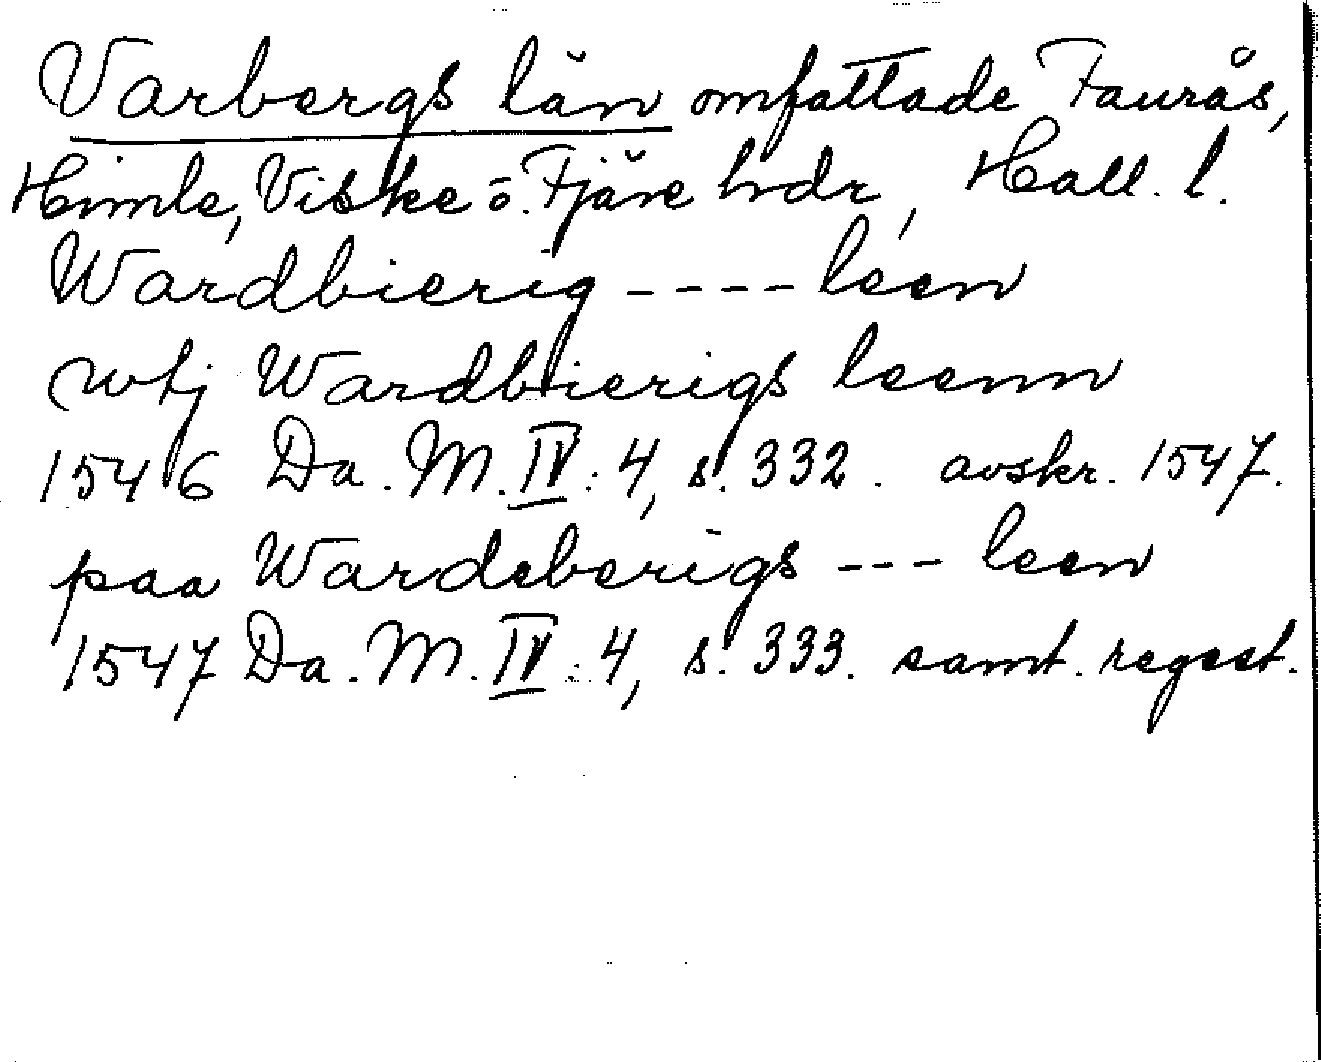 Varbergs län omfattade Faurås,
Himle, Viske o. Fjäre hrdr, Hall. l.
Wardbierig ---- leen
wtj Wardbierigs leenn
1546 Da. M. IV: 4, s. 332. avskr. 1547.
paa Wardeberigs --- leen
1547 Da. M. IV: 4, s. 333. samt. regest.